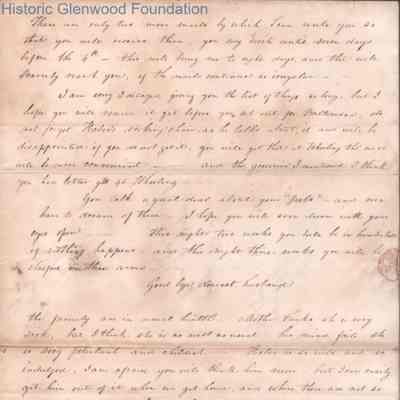 Historic Glenwood Foundation
There are only two more mails by which I can write you so
that you will receive them, you say
before the 4th — this will bring me to eight days, and this will
scarcely reach you, if the mails continue as irregular —
I am sorry I delayed giving you the list of things so long, but I
hope you will receive it get before you set out for Baltimore, do
not forget Robert's rocking chair, as he talks about it and will be
disappointed if you do not get it. you will get that at Wheeling the rest
will be more convenient — and the groceries I mentioned I think
you can better get at Wheeling
You talk a great deal about your and
have to dream of them — I hope you will even dream with your
eyes open — This night two weeks you will be in
if nothing happens and this night three weeks you will be
clasped in these arms
Good bye dearest husband
the family are in usual health. Mother Parks is very
, but I think she is as well as usual. her mind fails she
is very petulant and childish. Robert is so wild and so
indulged, I am afraid you will think him ruined but I can easily
get him out of it when we get home, and where there are not so